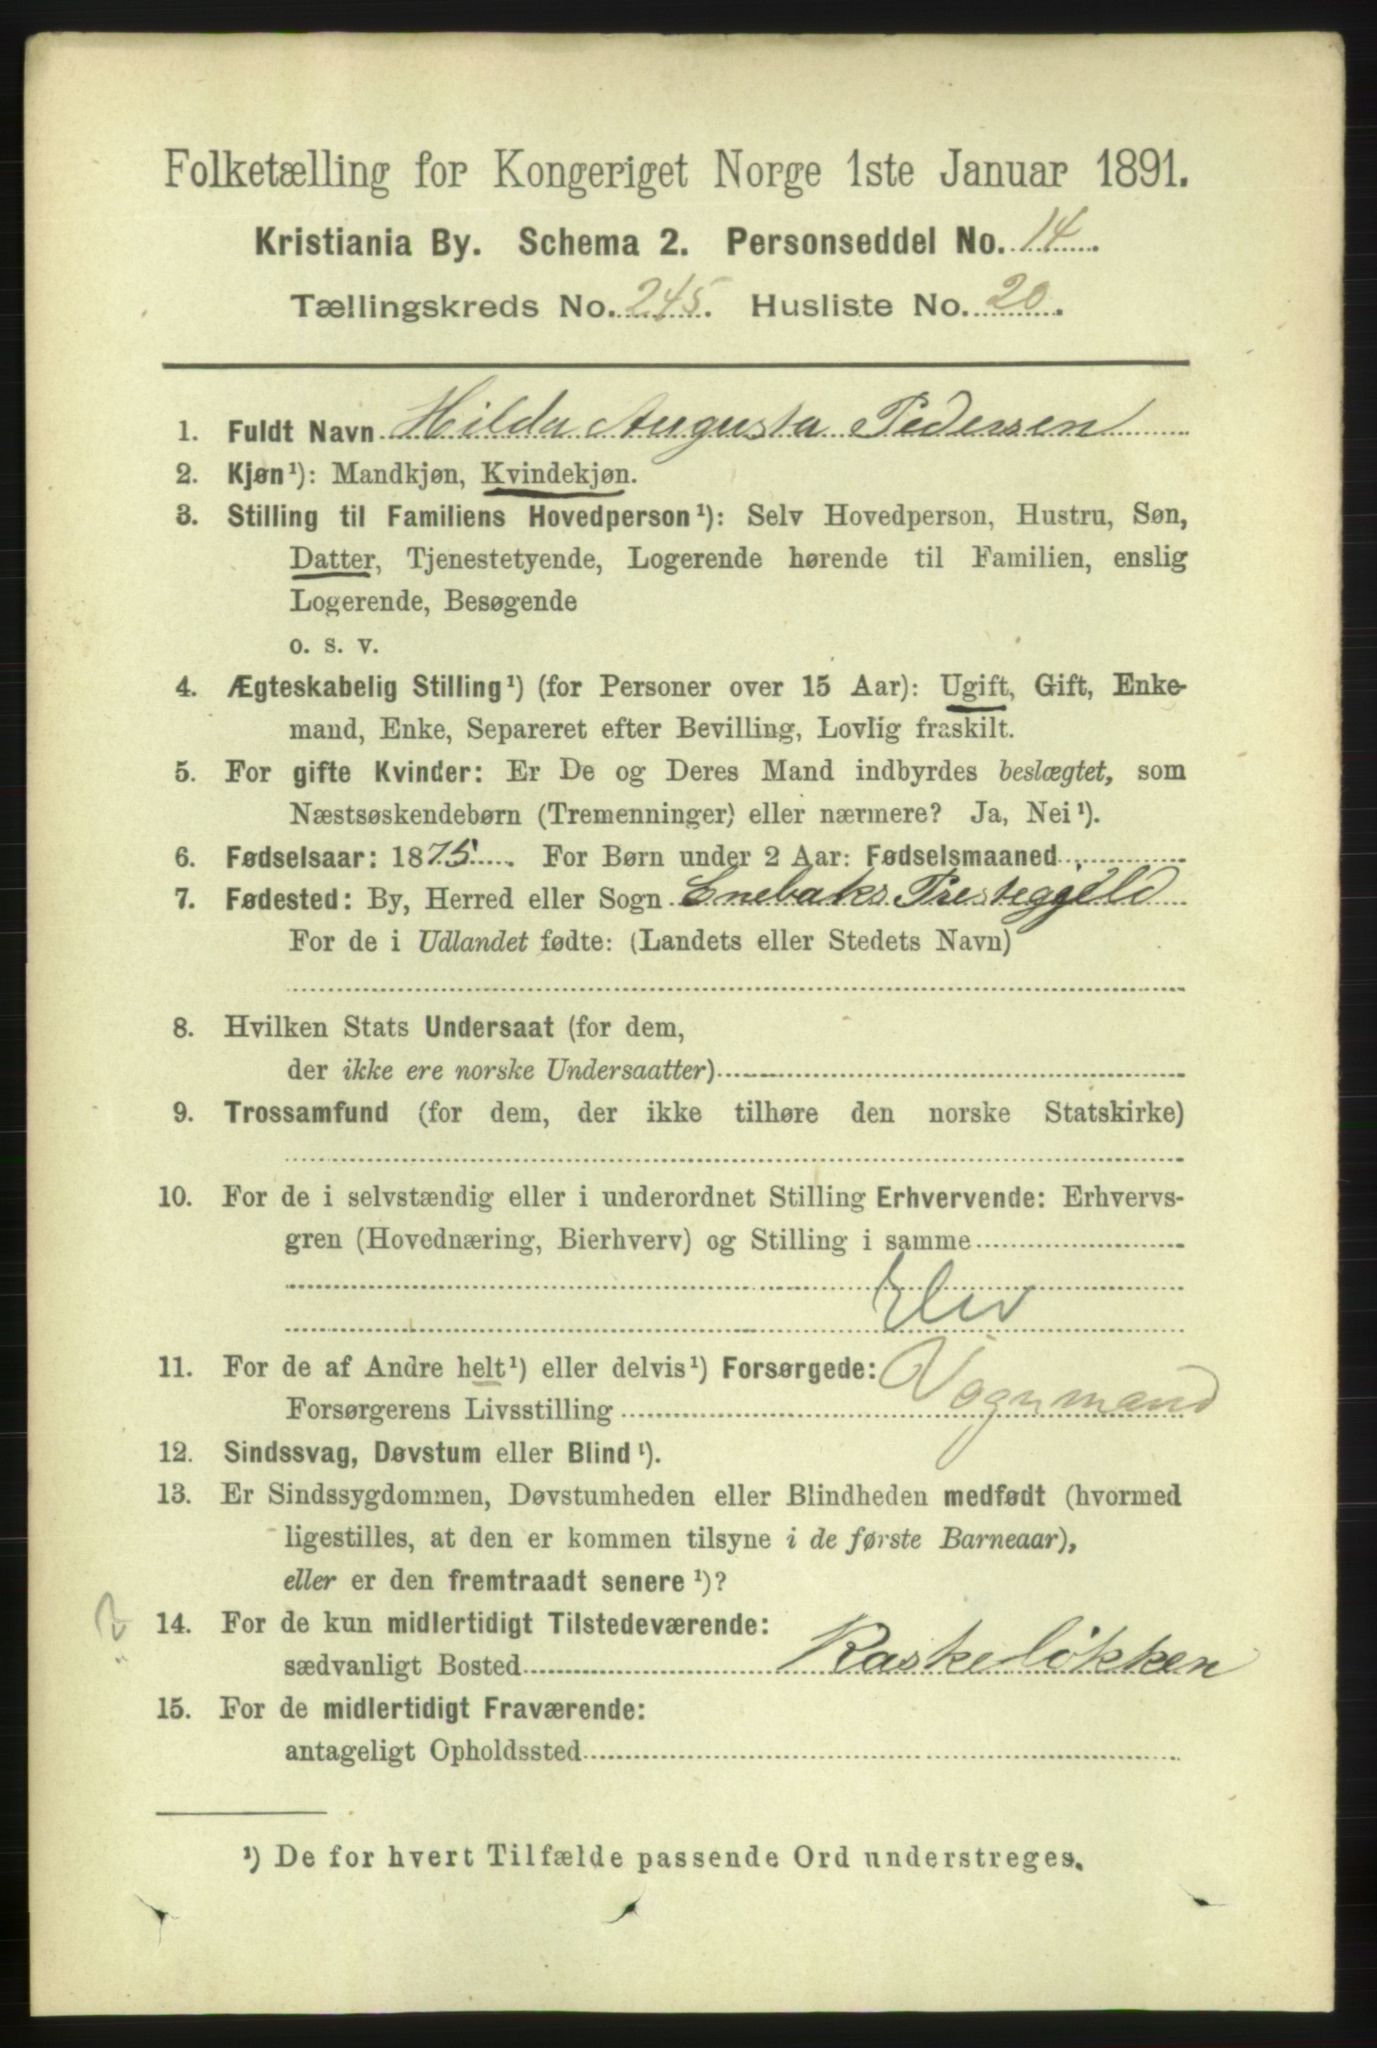 Folketælling for Kongeriget Norge 1ste Januar 1891.
Kristiania By. Schema 2. Personseddel No. 14.
Tællingskreds No. 245. Husliste No. 20.
1. Fuldt Navn Hilda Augusta Pedersen
2. Kjøn¹): Mandkjøn, Kvindekjøn.
3. Stilling til Familiens Hovedperson¹): Selv Hovedperson, Hustru, Søn,
Datter, Tjenestetyende, Logerende hørende til Familien, enslig
Logerende, Besøgende
o. s. v.
4. Ægteskabelig Stilling¹) (for Personer over 15 Aar): Ugift, Gift, Enke-
mand, Enke, Separeret efter Bevilling, Lovlig fraskilt.
5. For gifte Kvinder: Er De og Deres Mand indbyrdes beslægtet, som
Næstsøskendebørn (Tremenninger) eller nærmere? Ja, Nei¹).
6. Fødselsaar: 1875. For Børn under 2 Aar: Fødselsmaaned
7. Fødested: By, Herred eller Sogn Enebaks Prestegjeld
For de i Udlandet fødte: (Landets eller Stedets Navn)
8. Hvilken Stats Undersaat (for dem,
der ikke ere norske Undersaatter)
9. Trossamfund (for dem, der ikke tilhøre den norske Statskirke)
10. For de i selvstændig eller i underordnet Stilling Erhvervende: Erhvervs-
gren (Hovednæring, Bierhverv) og Stilling i samme
Elev
11. For de af Andre helt¹) eller delvis¹) Forsørgede:
Forsørgerens Livsstilling Vognmand
12. Sindssvag, Døvstum eller Blind¹).
13. Er Sindssygdommen, Døvstumheden eller Blindheden medfødt (hvormed
ligestilles, at den er kommen tilsyne i de første Barneaar),
eller er den fremtraadt senere¹)?
14. For de kun midlertidigt Tilstedeværende:
sædvanligt Bosted Raskeløkken
15. For de midlertidigt Fraværende:
antageligt Opholdssted
¹) De for hvert Tilfælde passende Ord understreges.